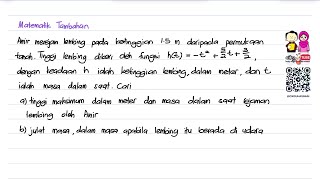 Matematik Tambahan
Amir merejam lembing pada ketinggian 1.5 m daripada permukaan
tanah. Tinggi lembing diberi oleh fungsi h(t) = -t² + 5/2 t + 3/2,
dengan keadaan h ialah ketinggian lembing, dalam meter, dan t
ialah masa dalam saat. Cari
a) tinggi maksimum dalam meter dan masa dalam saat rejaman
lembing oleh Amir
b) julat masa, dalam masa apabila lembing itu berada di udara